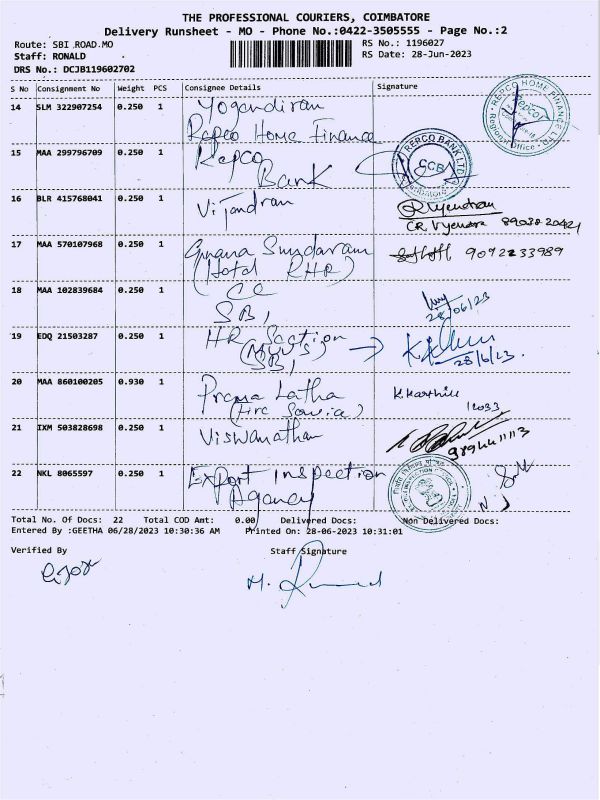 THE PROFESSIONAL COURIERS, COIMBATORE
Delivery Runsheet - MO - Phone No.:0422-3505555 - Page No.:2
Route: SBI ROAD.MO RS No.: 1196027
Staff: RONALD RS Date: 28-Jun-2023
DRS No.: DCJB119602702
S No Consignment No Weight PCS Consignee Details Signature
14 SLM 322907254 0.250 1 Yogandiran
Repco Home Finance
REPCO HOME FINANCE
15 MAA 299796709 0.250 1 Repco
Bank
REPCO BANK LTD
CCB
16 BLR 415768041 0.250 1 ViJandran
17 MAA 570107968 0.250 1 Gnana Sundaram 9092233989
(Hotel RHR)
18 MAA 102839684 0.250 1 CC
SB, 28/06/23
19 EDQ 21503287 0.250 1 HR Section
SB, 28/6/23.
20 MAA 860100205 0.930 1 Prema Latha K. Karthik
21 IXM 503828698 0.250 1 Viswanathan
22 NKL 8065597 0.250 1 Export Inspection
Agency
Total No. Of Docs: 22 Total COD Amt: 0.00 Delivered Docs: Non Delivered Docs:
Entered By :GEETHA 06/28/2023 10:30:36 AM Printed On: 28-06-2023 10:31:01
Verified By Staff Signature